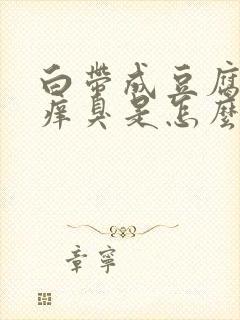 白帶成豆腐
癢臭是怎麼
章寧